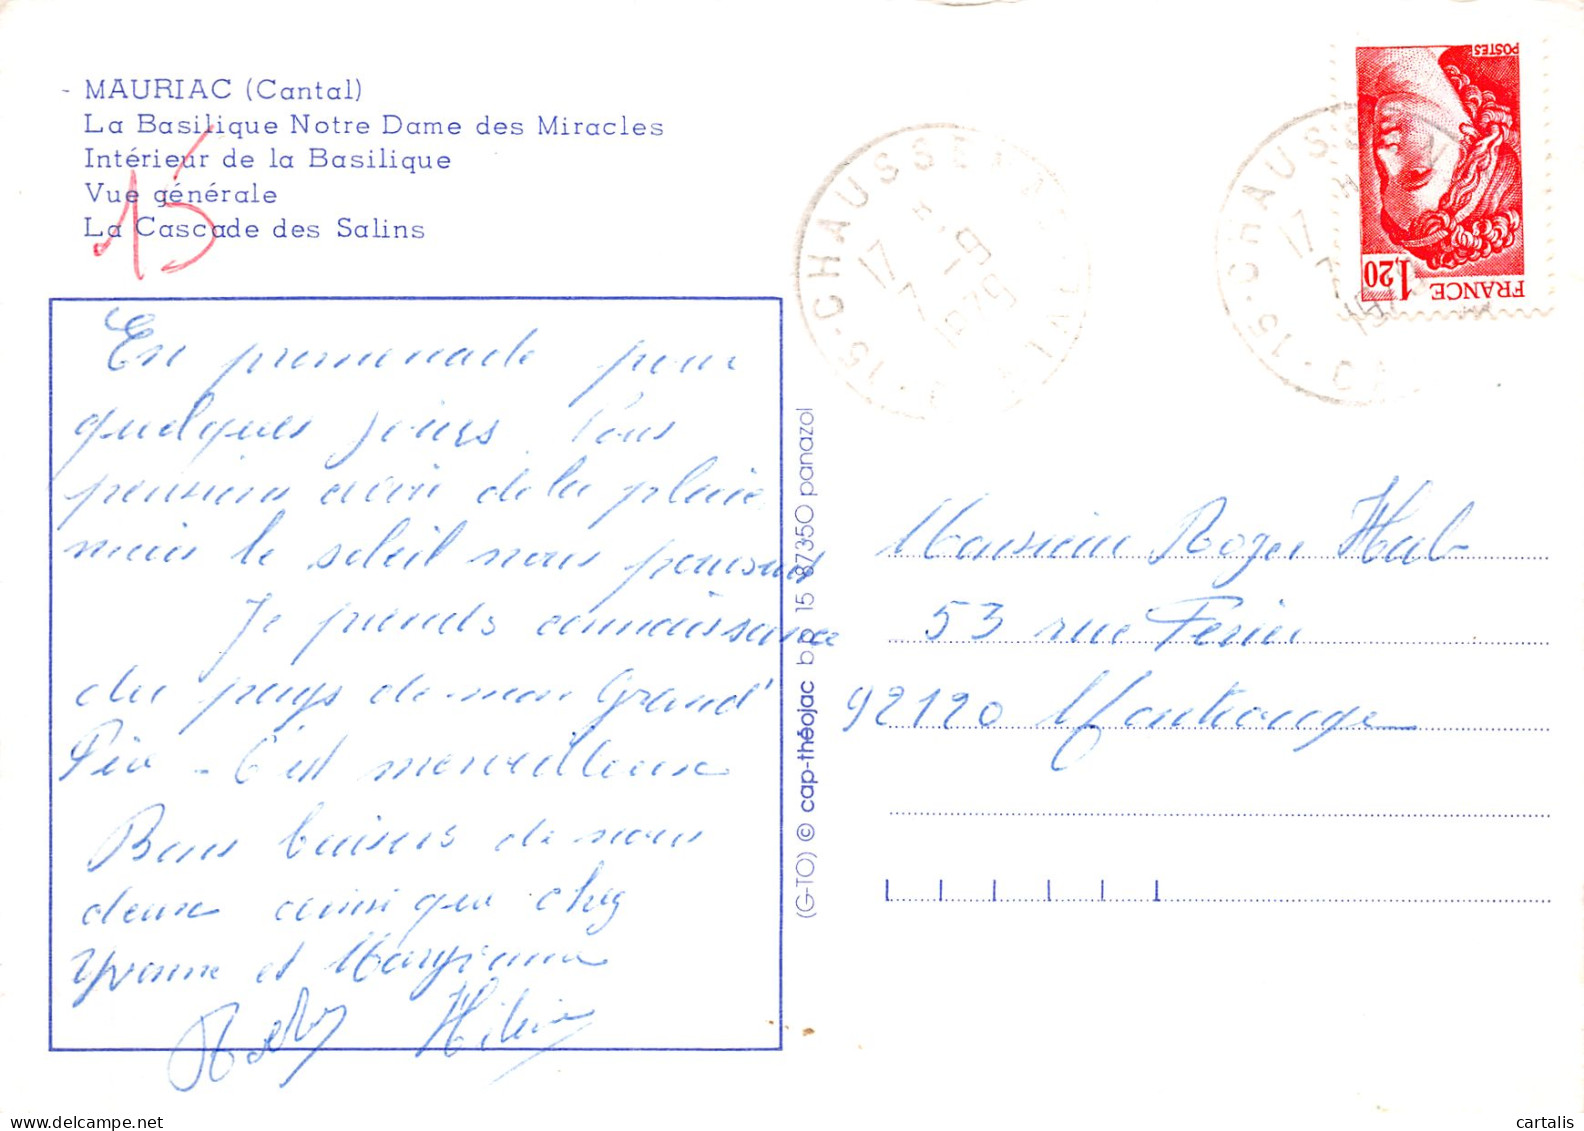 - MAURIAC (Cantal)
La Basilique Notre Dame des Miracles
Intérieur de la Basilique
Vue générale
La Cascade des Salins
15
POSTES
1,20
FRANCE
15-CHAUSSENAC
17
7
1979
15-CHAUSSENAC
17
En promenade pour
quelques jours. Nous
pensions avoir de la pluie,
mais le soleil nous
Je prends connaissance
du pays de mon Grand'
Père - C'est merveilleux
Bons baisers de nous
deux ainsi que chez
Yvonne et
Monsieur Roger
53 rue Périer
92120 Montrouge
(G-TO) © cap-théojac b.p. 15 87350 panazol
cartalis
delcampe.net